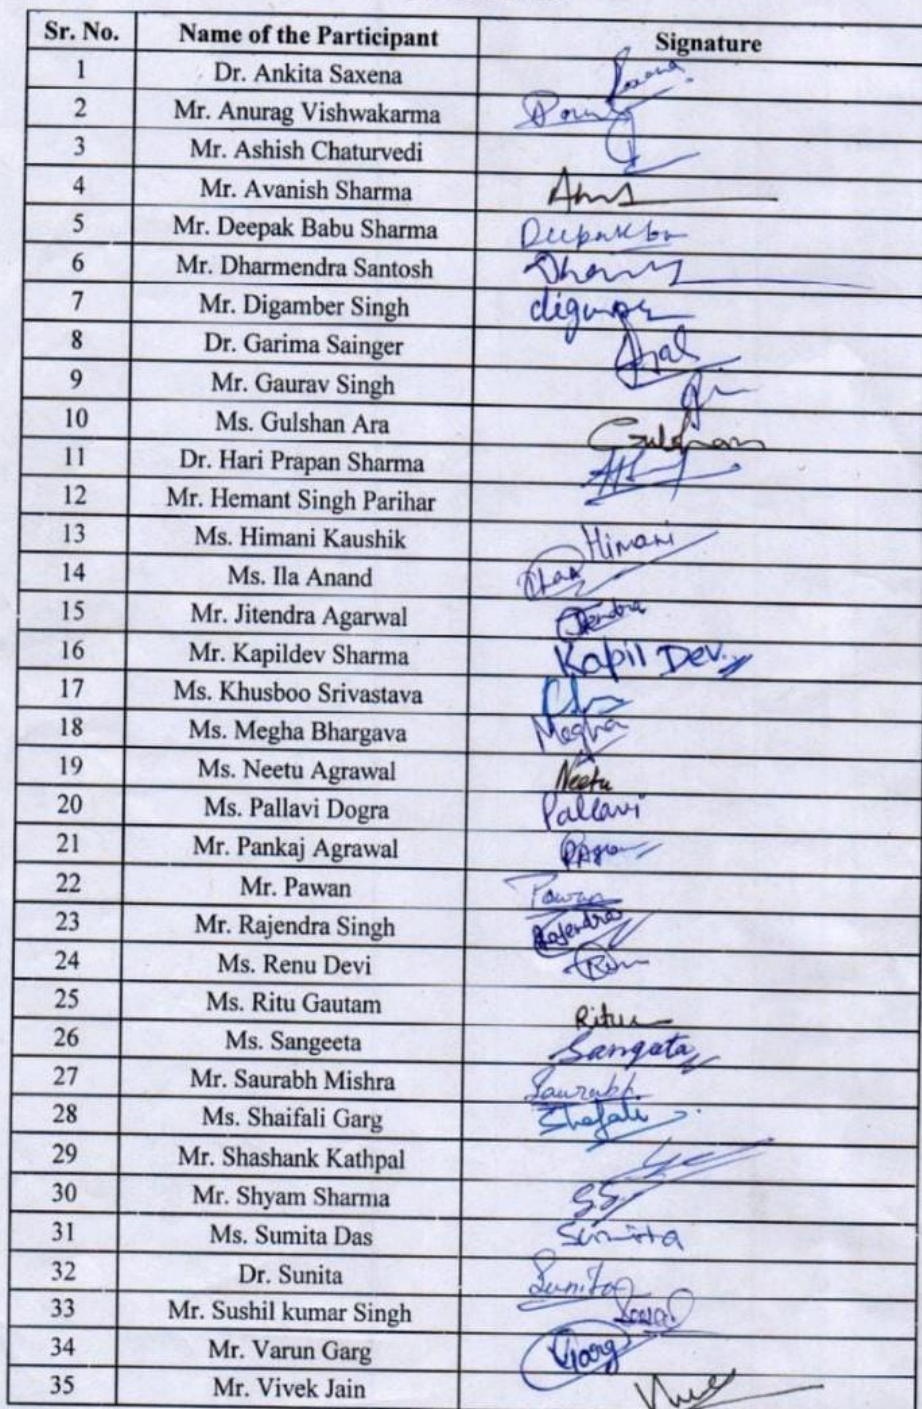 Sr. No. Name of the Participant Signature
1 Dr. Ankita Saxena Saxena
2 Mr. Anurag Vishwakarma
3 Mr. Ashish Chaturvedi
4 Mr. Avanish Sharma
5 Mr. Deepak Babu Sharma
6 Mr. Dharmendra Santosh
7 Mr. Digamber Singh
8 Dr. Garima Sainger
9 Mr. Gaurav Singh
10 Ms. Gulshan Ara Gulshan
11 Dr. Hari Prapan Sharma
12 Mr. Hemant Singh Parihar
13 Ms. Himani Kaushik Himani
14 Ms. Ila Anand
15 Mr. Jitendra Agarwal
16 Mr. Kapildev Sharma Kapil Dev
17 Ms. Khusboo Srivastava
18 Ms. Megha Bhargava Megha
19 Ms. Neetu Agrawal Neetu
20 Ms. Pallavi Dogra Pallavi
21 Mr. Pankaj Agrawal
22 Mr. Pawan Pawan
23 Mr. Rajendra Singh Rajendra
24 Ms. Renu Devi
25 Ms. Ritu Gautam Ritu
26 Ms. Sangeeta Sangeeta
27 Mr. Saurabh Mishra Saurabh
28 Ms. Shaifali Garg Shefali
29 Mr. Shashank Kathpal
30 Mr. Shyam Sharma
31 Ms. Sumita Das Sumita
32 Dr. Sunita Sunita
33 Mr. Sushil kumar Singh
34 Mr. Varun Garg VGarg
35 Mr. Vivek Jain